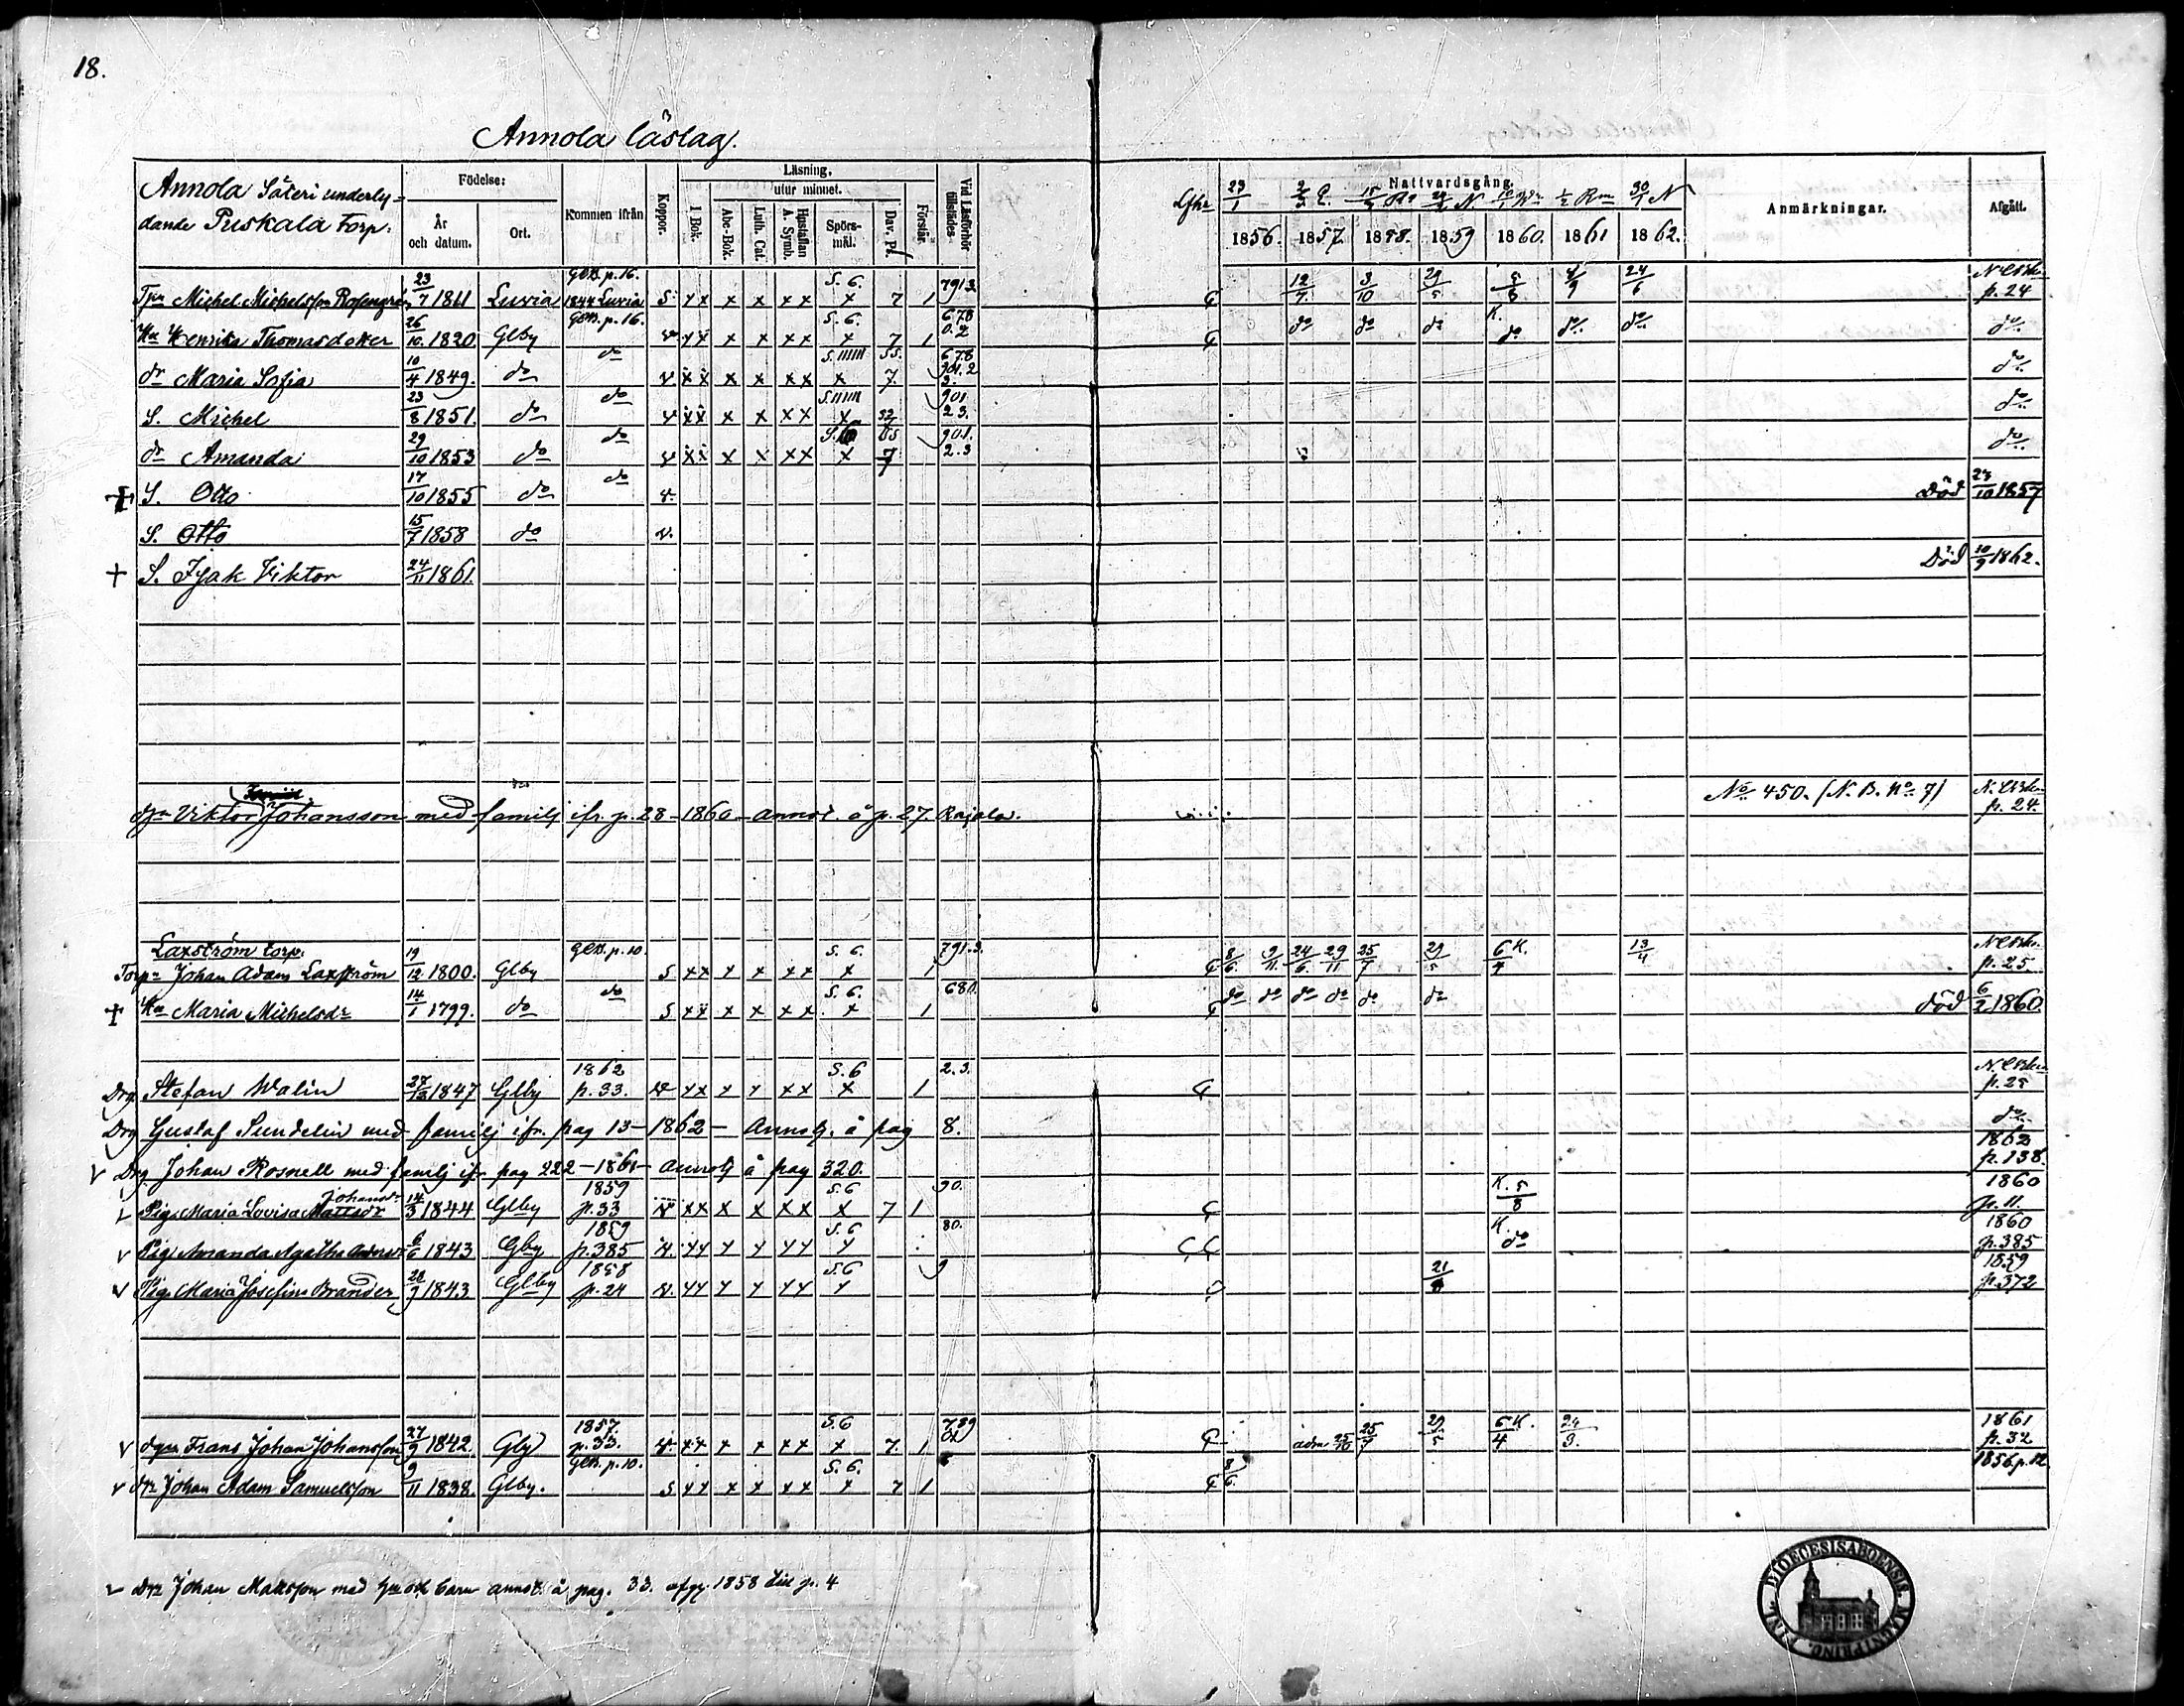 18.
Annola läslag.
Annola Säteri underly=
dande Puskala torp.
Födelse:
År och datum.
Ort.
Kommen ifrån
Koppor.
Läsning.
I Bok.
utur minnet.
Abc-Bok.
Luth. Cat.
Hustaflan A. Symb.
Spörs-mål.
Dav. Ps.
Förstår.
Vid Läsförhör tillstädes
Nattvardsgång.
1856. 1857. 1858. 1859 1860. 1861 1862.
Anmärkningar.
Afgått.
Michel Michelsson Rosengrén 23/7 1811 Luvia GCB. p. 16. 1844 Luvia S. xx x x xx S. 6. x 7 1 791.2 12/7 3/10 29/5 24/6 p. 24
Hu Henrika Thomasdotter 26/10 1820 Glby GCB. p. 16. v xx x x xx S. 6. x 7 1 678 0.2 do do do K. do do do do
dr Maria Sofia 10/4 1849. do do v xx x x xx x 7. 678 901.2 3. do
S. Michel 23/8 1851. do do v xx x x xx x 901 23. do
dr Amanda 29/10 1853 do do v xx x x xx x 7 901. 2.3 do
S. Otto 17/10 1855 do do v. Död 23/10 1857
S. Otto 15/7 1858 do v.
S. Isak Viktor 24/11 1861. Död 10/9 1862.
Viktor Johansson med familj ifr. p. 28 - 1860 - annot. å p. 27. Rajala. No 450. (N. B. No 7) p. 24
Laxström torp.
Torpr Johan Adam Laxström 19/12 1800. Glby GCB. p. 10 S xx x x xx S. 6. x 1 791.3. 8/6. 9/11. 24/6. 29/11 25/7 29/5 6/4 K. 13/4 p. 25
Hu Maria Michelsdr 14/1 1799. do do S xx x x xx S. 6. x 1 680. do do do do do do död 6/2 1860.
Drg Stefan Walin 27/12 1847 Glby 1862 p. 33. v xx x x xx S. 6 x 1 2.3. p. 25
Drg Gustaf Sundelin med familj ifr. pag 13 - 1862 - Annot. å pag 8. do
Drg Johan Rosnell med familj ifr pag 222 - 1861 - annot å pag 320. 1862 p. 138.
Pig. Maria Lovisa Mattsdr Johansdr 14/3 1844 Glby 1859 p. 33 v xx x x xx S. 6 x 7 1 90. K. 5/8 1860 p. 11.
Pig. Amanda Agatha 6/6 1843 Glby 1859 p. 385 v. xx x x xx S. 6 x 80. K. do 1860 p. 385
Pig. Maria Josefina Brander 28/9 1843 Glby 1858 p. 24 v. xx x x xx S. 6 x 9 1859 p. 372
Frans Johan Johansson 27/9 1842. Glby 1857. p. 33. v xx x x xx S. 6 x 7. 1 789 adm 25/7 29/5 6/4 K. 24/3. 1861 p. 32
Johan Adam Samuelsson 9/11 1838. Glby. GCB. p. 10. S xx x x xx S. 6. x 7 1 8/6. 1856 p. 12.
Johan Mattsson med hu och barn annot. å pag. 33. afg. 1858 till p. 4